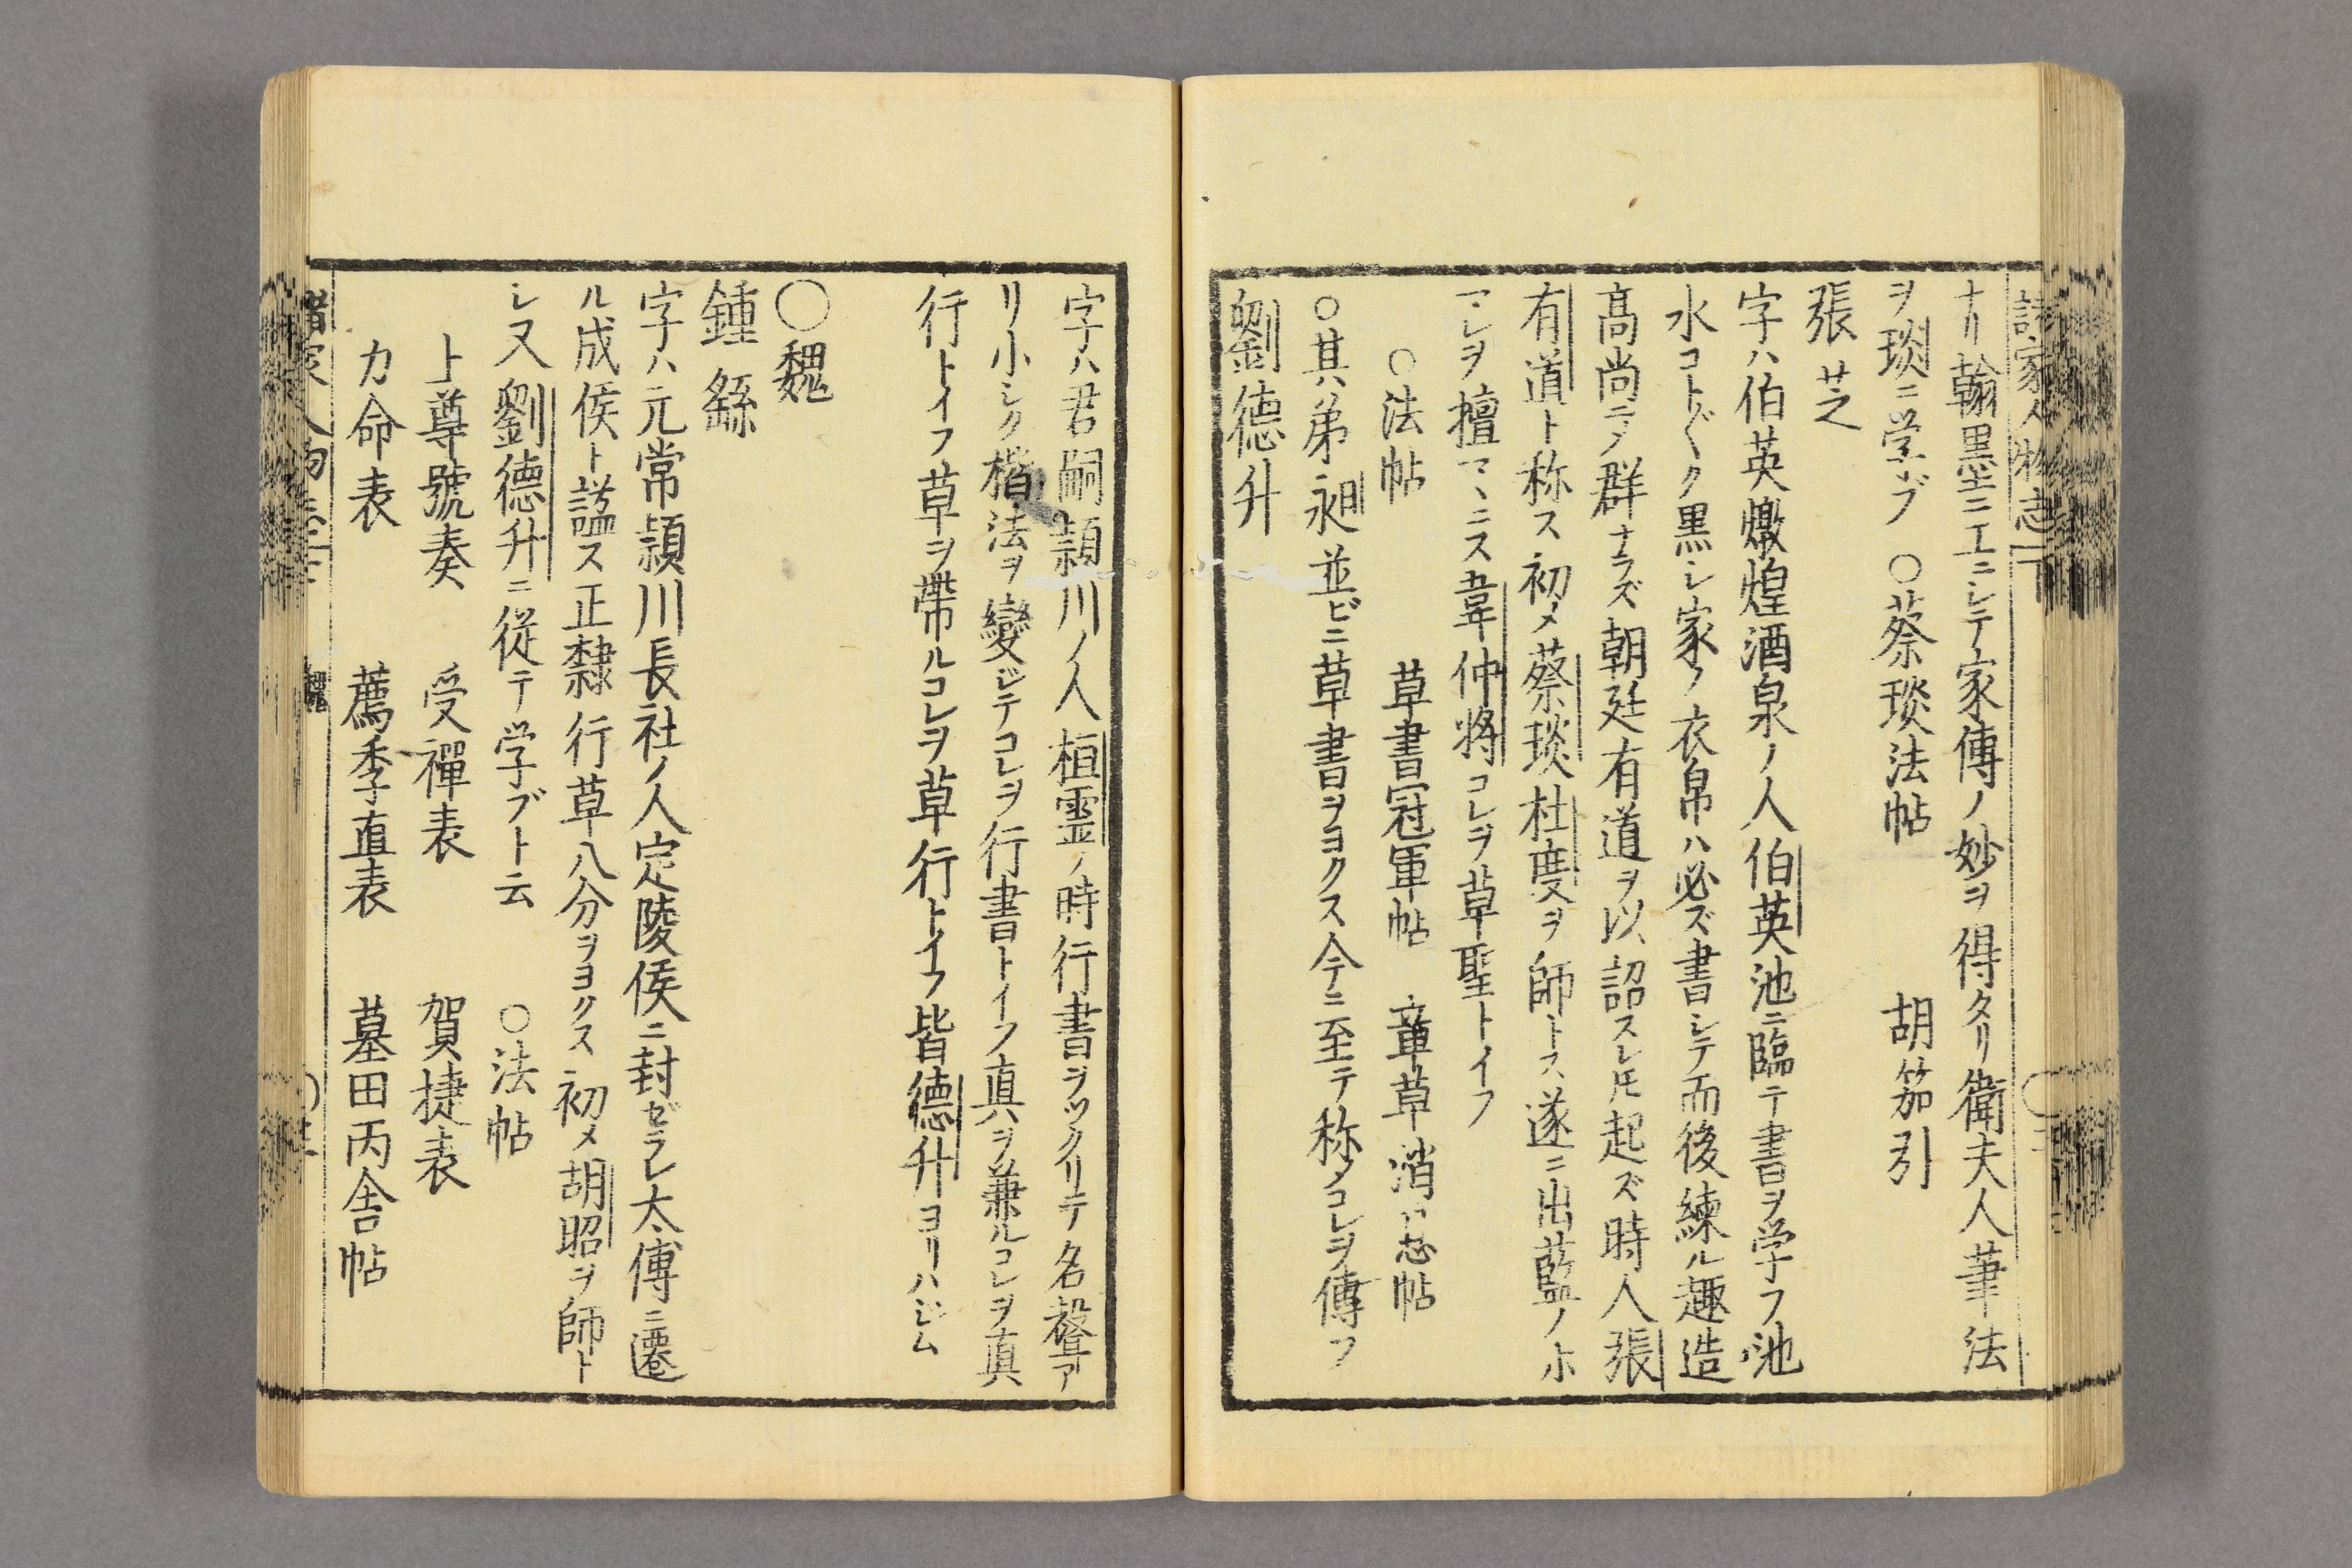 ナリ翰墨ニ工ニシテ家傳ノ妙ヲ得タリ衛夫人筆法
ヲ琰ニ学ブ ○蔡琰法帖 胡笳引
張芝
字ハ伯英燉煌酒泉ノ人伯英池ニ臨テ書ヲ学フ池
水コト〴〵ク黒シ家ノ衣帛ハ必ズ書シテ而後練ル趣造
髙尚ニノ群ナラズ朝廷有道ヲ以詔スレ𪜈起ズ時人張
有道ト称ス初メ蔡琰杜度ヲ師トス遂ニ出藍ノホ
マレヲ擅マヽニス韋仲将コレヲ草聖トイフ
○法帖 草書冠軍帖 章草消 帖
○其弟昶並ビニ草書ヲヨクス今ニ至テ称メコレヲ傳フ
劉徳升
字ハ君嗣頴川ノ人桓霊ノ時行書ヲツクリテ名聲ア
リ小シク楷法ヲ變ジテコレヲ行書トイフ真ヲ兼ルコレヲ真
行トイフ草ヲ帶ルコレヲ草行トイフ皆徳升ヨリハジム
○魏
鍾繇
字ハ元常頴川長社ノ人定陵侯ニ封ゼラレ太傅ニ遷
ル成侯ト諡ス正隷行草八分ヲヨクス初メ胡昭ヲ師ト
シ又劉徳升ニ従テ学ブト云 ○法帖
上尊號奏 受禪表 賀捷表
力命表 薦季直表 墓田丙舎帖